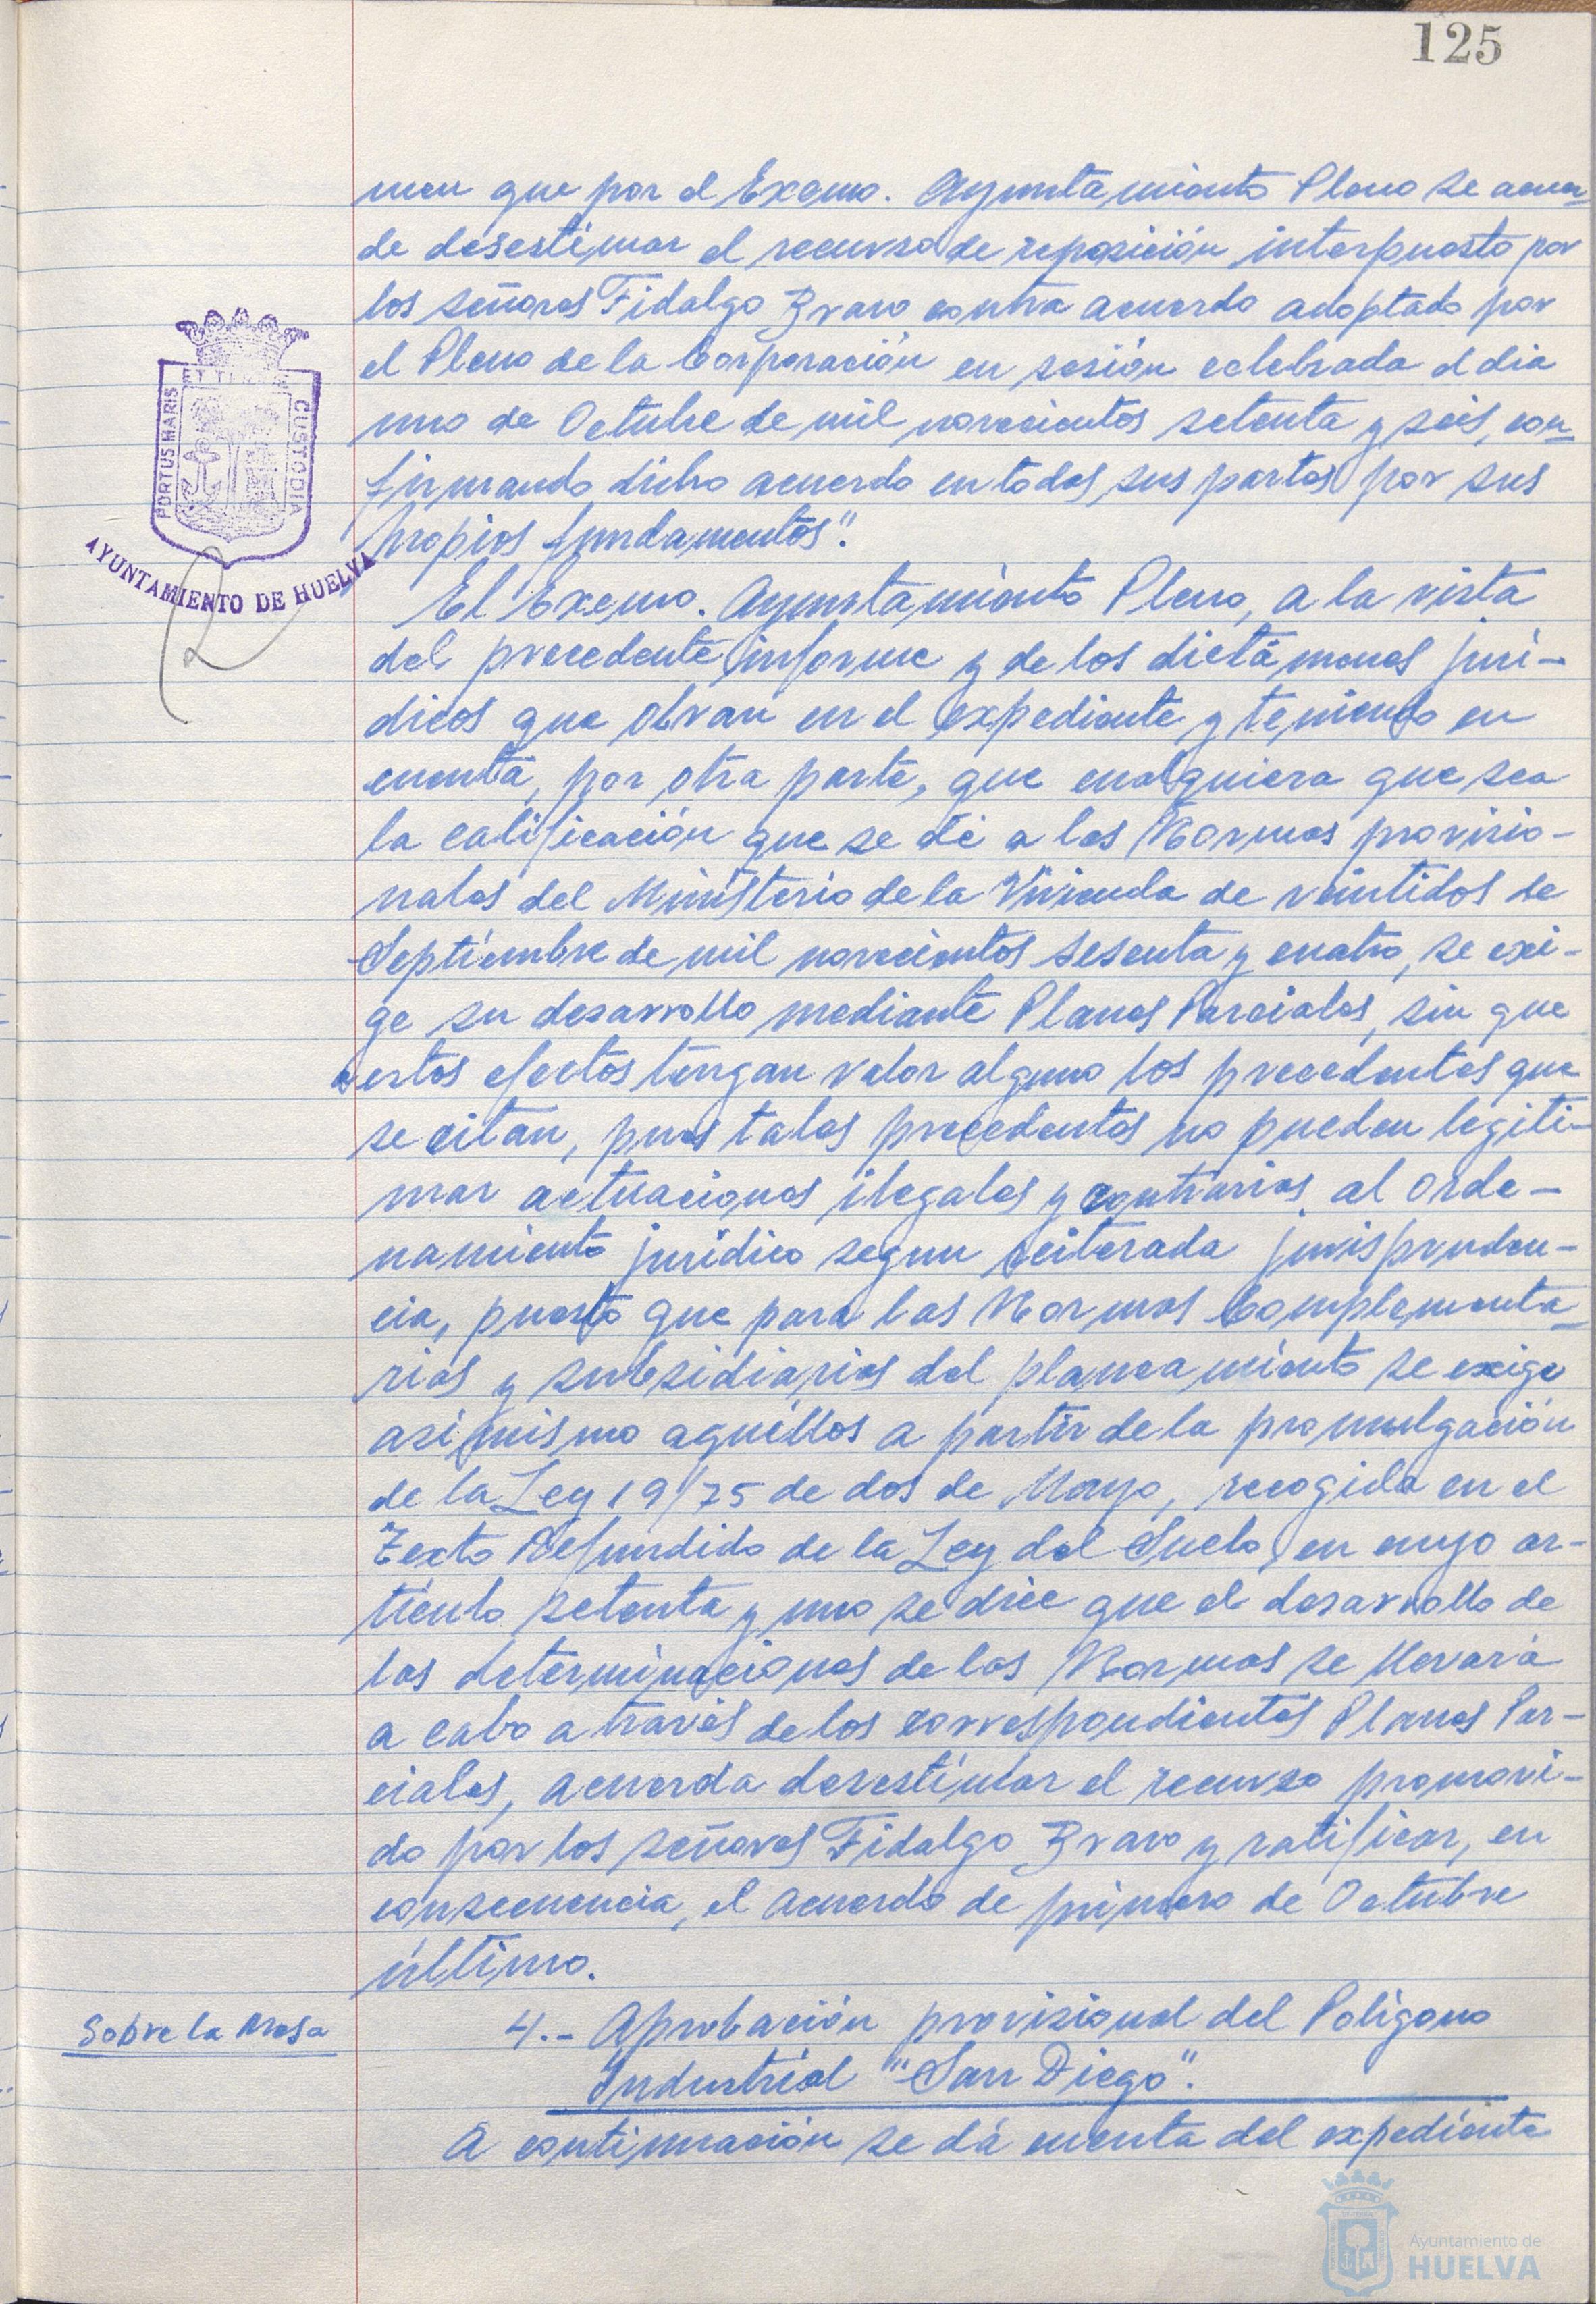 125
men que por el Excmo. Ayuntamiento Pleno se acuer-
de desestimar el recurso de reposición interpuesto por
los señores Fidalgo Bravo contra acuerdo adoptado por
el Pleno de la Corporación en sesión celebrada el dia
uno de Octubre de mil novecientos setenta y seis, con-
firmando dicho acuerdo en todas sus partes por sus
propios fundamentos".
PORTUS MARIS
ET TERRAE
CUSTODIA
AYUNTAMIENTO DE HUELVA
El Excmo. Ayuntamiento Pleno, a la vista
del precedente informe y de los dictámenes jurí-
dicos que obran en el expediente y teniendo en
cuenta, por otra parte, que cualquiera que sea
la calificación que se dé a las Normas provisio-
nales del Ministerio de la Vivienda de veintidos de
Septiembre de mil novecientos sesenta y cuatro, se exi-
ge su desarrollo mediante Planes Parciales, sin que
a estos efectos tengan valor alguno los precedentes que
se citan, pues tales precedentes no pueden legiti-
mar actuaciones ilegales y contrarias al orde-
namiento jurídico segun reiterada jurispruden-
cia, puesto que para las Normas Complementa-
rias y subsidiarias del planeamiento se exige
asimismo aquéllos a partir de la promulgación
de la Ley 19/75 de dos de Mayo, recogida en el
Texto Refundido de la Ley del Suelo, en cuyo ar-
tículo setenta y uno se dice que el desarrollo de
las determinaciones de las Normas se llevará
a cabo a través de los correspondientes Planes Par-
ciales, acuerda desestimar el recurso promovi-
do por los señores Fidalgo Bravo y ratificar, en
consecuencia, el acuerdo de primero de Octubre
último.
Sobre la Mesa
4.- Aprobación provisional del Polígono
Industrial "San Diego".
A continuación se dá cuenta del expediente
Ayuntamiento de
HUELVA